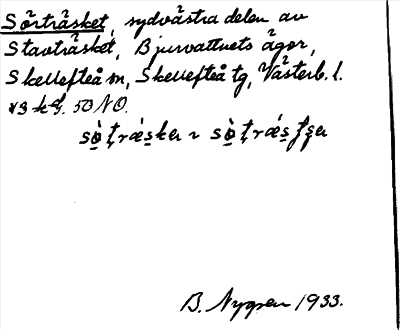 Sörträsket, sydvästra delen av
Stavträsket, Bjurvattnets ägor,
Skellefteå m, Skellefteå tg, Västerb. l.
43 50 NO.
B. Nygren 1933.